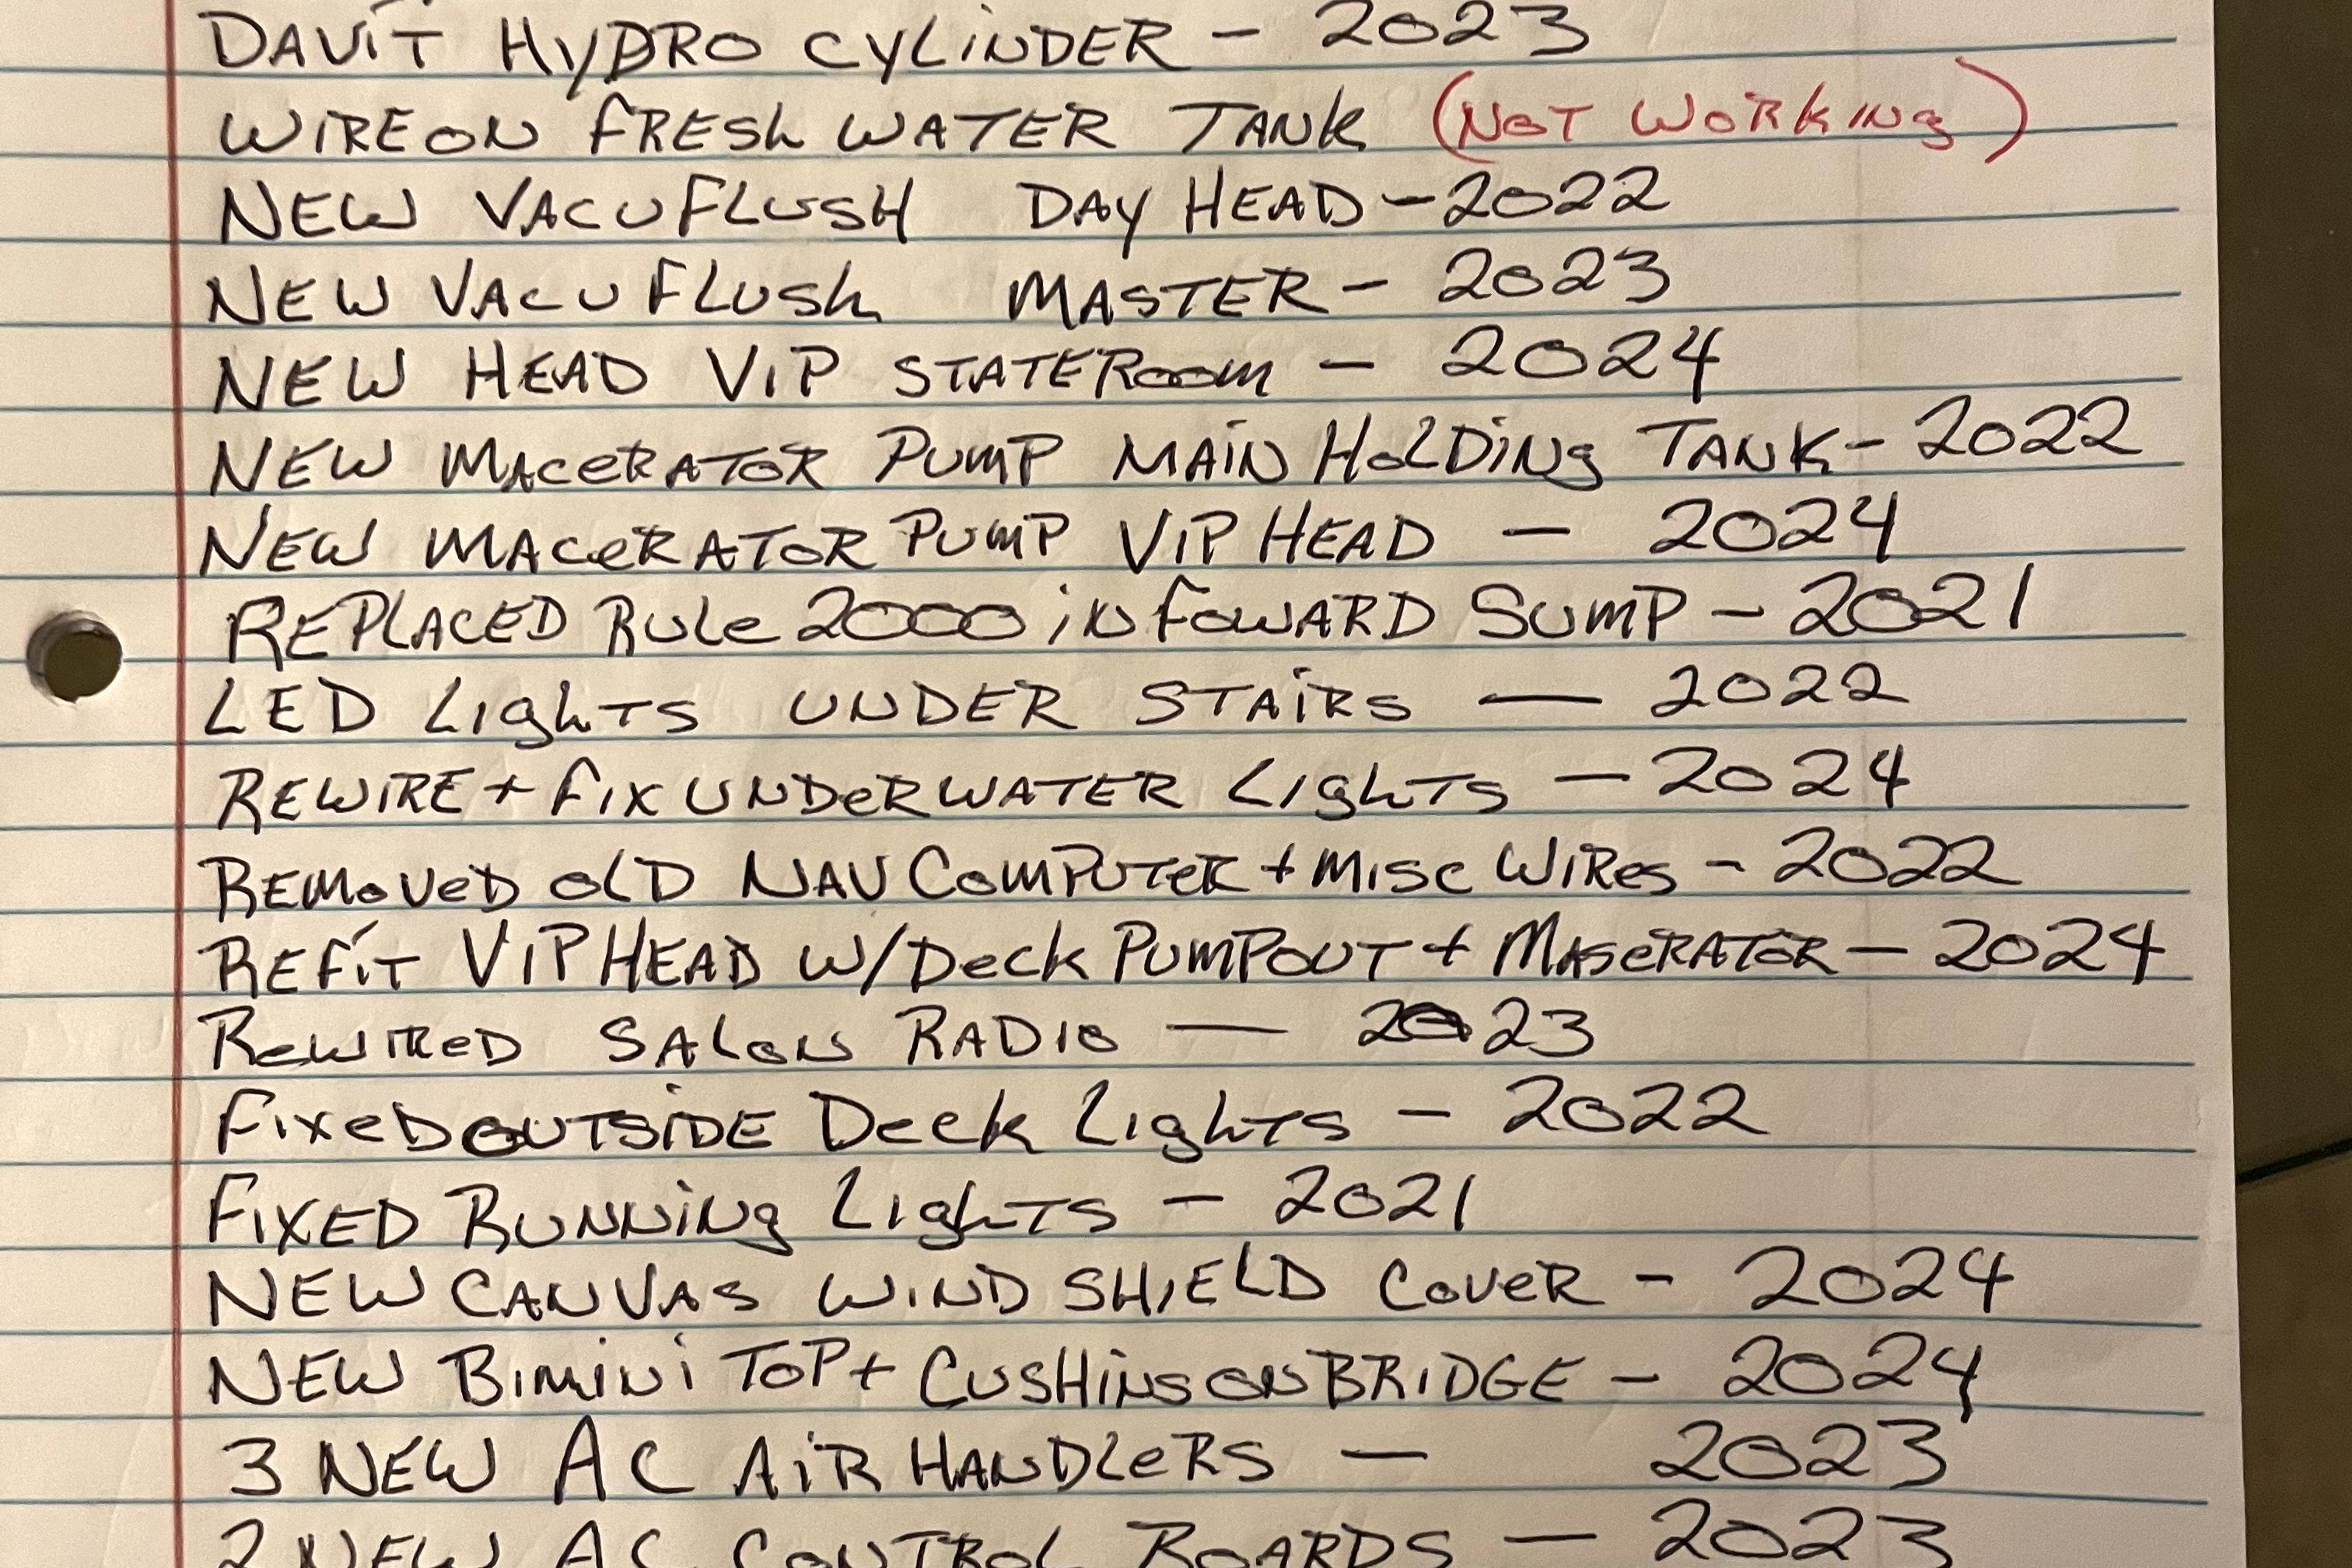 DAViT HYDRO CYLiNDER - 2023
WIRE ON FRESh WATER TANK (NOT WORKING)
NEW VACUFLUSH DAY HEAD - 2022
NEW VACUFLUSh MASTER - 2023
NEW HEAD ViP STATEROOM - 2024
NEW MACeRATOR PUMP MAiN HOLDiNg TANK - 2022
NEW MACeRATOR PUMP ViP HEAD - 2024
REPLACED RULe 2000 iN FOWARD SUMP - 2021
LED LIghTS UNDER STAiRS - 2022
REWIRE + FIX UNDeRWATER LIghTS - 2024
REMOVeD OLD NAV COMPUTeR + MISC WiRes - 2022
REFiT ViP HEAD W/ Deck PUMPOUT + MASeRATOR - 2024
ReWIReD SALON RADIO - 2023
FixeD OUTSiDE Deck LIghTS - 2022
FIXED RUNNiNg LIghTS - 2021
NEW CANVAS WIND SHIELD COVeR - 2024
NEW BiMiNi TOP + CUSHiNS ON BRIDGE - 2024
3 NEW AC AiR HANDLeRS - 2023
2 NEW AC CONTROL BOARDS - 2023